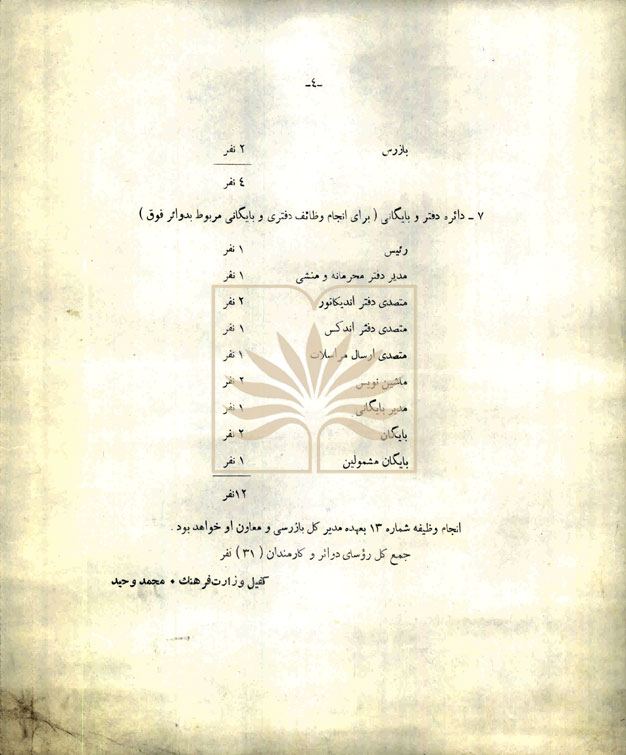 -٤-
بازرس ۲ نفر
٤ نفر
۷ - دائره دفتر و بایگانی ( برای انجام وظائف دفتری و بایگانی مربوط بدوائر فوق )
رئیس ۱ نفر
مدیر دفتر محرمانه و منشی ۱ نفر
متصدی دفتر اندیکاتور ۲ نفر
متصدی دفتر اندکس ۱ نفر
متصدی ارسال مراسلات ۱ نفر
ماشین نویس ۲ نفر
مدیر بایگانی ۱ نفر
بایگان ۲ نفر
بایگان مشمولین ۱ نفر
۱۲نفر
انجام وظیفه شماره ۱۳ بعهده مدیر کل بازرسی و معاون او خواهد بود .
جمع کل رؤسای دوائر و کارمندان ( ۳۱ ) نفر
کفیل وزارت فرهنك • محمد وحید